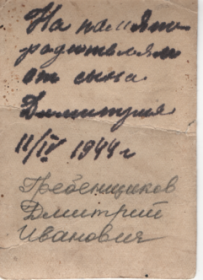 На память
родителям
от сына
Димитрия
11/IV 1944 г
Гребенщиков
Дмитрий
Иванович